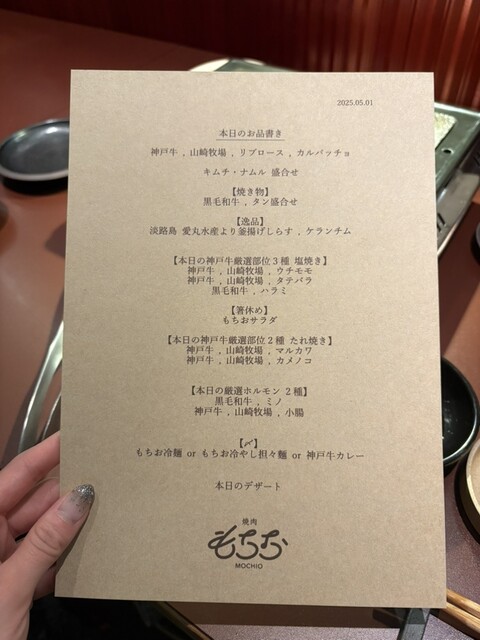 2025.05.01
本日のお品書き
神戸牛 , 山崎牧場 , リブロース , カルパッチョ
キムチ・ナムル 盛合せ
【焼き物】
黒毛和牛 , タン盛合せ
【逸品】
淡路島 愛丸水産より釜揚げしらす , ケランチム
【本日の神戸牛厳選部位3種 塩焼き】
神戸牛 , 山崎牧場 , ウチモモ
神戸牛 , 山崎牧場 , タテバラ
黒毛和牛 , ハラミ
【箸休め】
もちおサラダ
【本日の神戸牛厳選部位2種 たれ焼き】
神戸牛 , 山崎牧場 , マルカワ
神戸牛 , 山崎牧場 , カメノコ
【本日の厳選ホルモン 2種】
黒毛和牛 , ミノ
神戸牛 , 山崎牧場 , 小腸
【〆】
もちお冷麺 or もちお冷やし担々麺 or 神戸牛カレー
本日のデザート
焼肉
もちお
MOCHIO